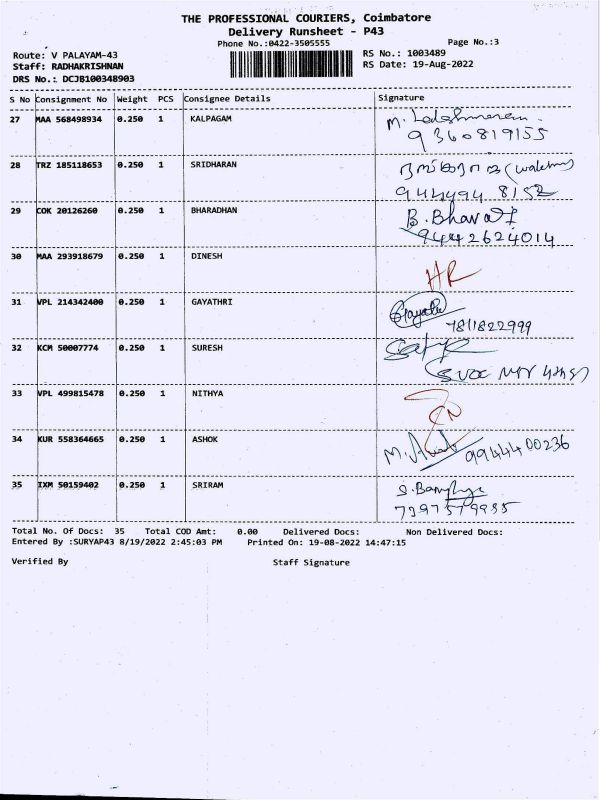 THE PROFESSIONAL COURIERS, Coimbatore
Delivery Runsheet - P43
Phone No.:0422-3505555
Page No.:3
Route: V PALAYAM-43
RS No.: 1003489
Staff: RADHAKRISHNAN
RS Date: 19-Aug-2022
DRS No.: DCJB100348903
S No Consignment No Weight PCS Consignee Details Signature
27 MAA 568498934 0.250 1 KALPAGAM M.
9360819155
28 TRZ 185118653 0.250 1 SRIDHARAN
944494 8152
29 COK 20126260 0.250 1 BHARADHAN B. Bharati
9442624014
30 MAA 293918679 0.250 1 DINESH HR
31 VPL 214342400 0.250 1 GAYATHRI Gayathri
7811822999
32 KCM 50007774 0.250 1 SURESH
33 VPL 499815478 0.250 1 NITHYA
34 KUR 558364665 0.250 1 ASHOK M. 9944400236
35 IXM 50159402 0.250 1 SRIRAM
7397579985
Total No. Of Docs: 35 Total COD Amt: 0.00 Delivered Docs: Non Delivered Docs:
Entered By :SURYAP43 8/19/2022 2:45:03 PM Printed On: 19-08-2022 14:47:15
Verified By Staff Signature